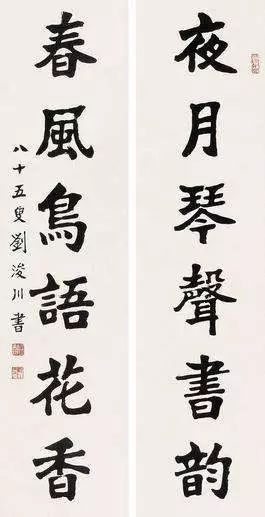 夜月琴聲書韵
春風鳥語花香
八十五叟劉浚川書